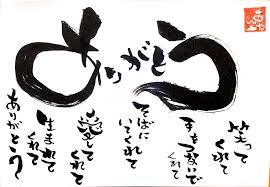 ありがとう
笑って
くれて
手をつないで
くれて
そばに
いてくれて
愛して
くれて
生まれて
くれて
ありがとう